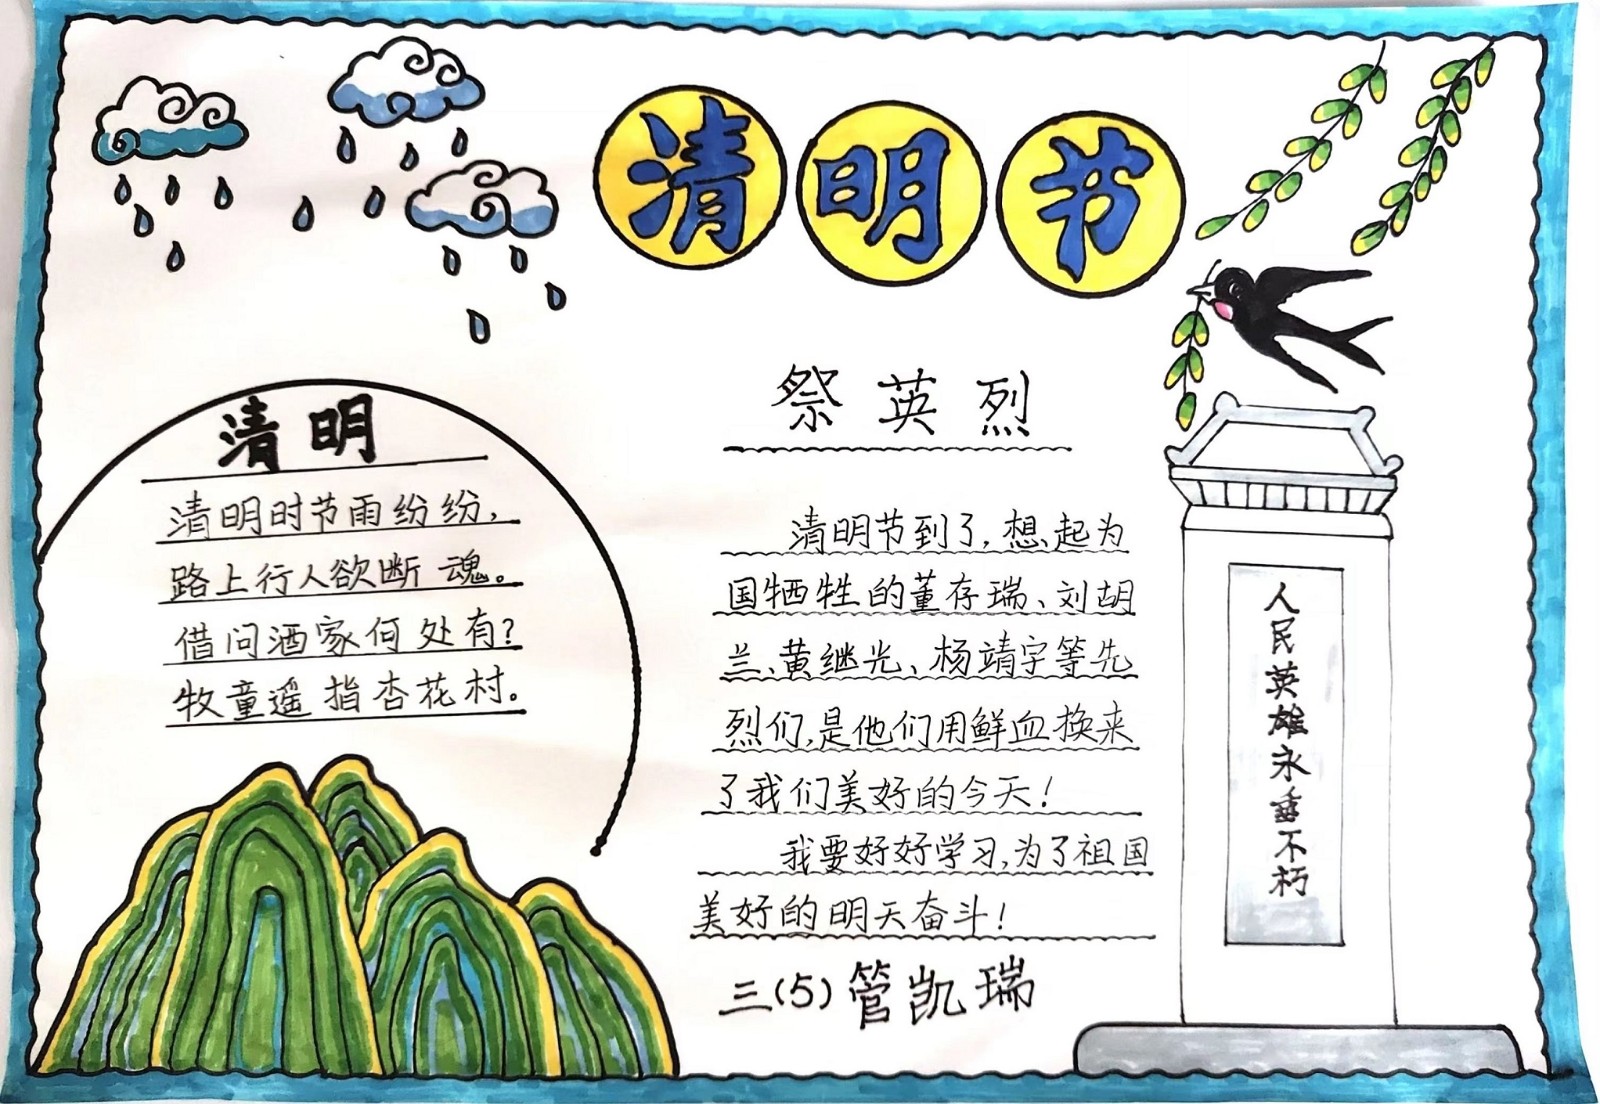 清明节
清明
清明时节雨纷纷，
路上行人欲断魂。
借问酒家何处有？
牧童遥指杏花村。
祭英烈
清明节到了，想起为
国牺牲的董存瑞、刘胡
兰、黄继光、杨靖宇等先
烈们，是他们用鲜血换来
了我们美好的今天！
我要好好学习，为了祖国
美好的明天奋斗！
三（5）管凯瑞
人民英雄永垂不朽